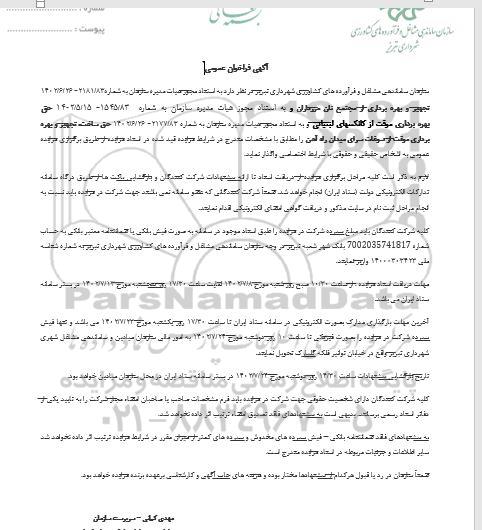 شماره :
پیوست :
سازمان ساماندهی مشاغل و فرآورده‌های کشاورزی
شهرداری تبریز
آگهی فراخوان عمومی
سازمان ساماندهی مشاغل و فرآورده های کشاورزی شهرداری تبریز در نظر دارد به استناد مجوز هیات مدیره سازمان به شماره ۲۱۸۱/۸۳- ۱۴۰۲/۶/۲۶
تجهیز و بهره برداری از مجتمع نان حیدرآباد و به استناد مجوز هیات مدیره سازمان به شماره ۱۵۴۵/۸۳- ۱۴۰۲/۵/۱۵ حق
بهره برداری موقت از کانکسهای لبنیاتی و به استناد مجوز هیات مدیره سازمان به شماره ۲۱۷۷/۸۳- ۱۴۰۲/۶/۲۶ حق ساخت، تجهیز و بهره
برداری موقت از سوخانه سرای میدان راه آهن را مطابق با مشخصات مندرج در شرایط مزایده قید شده در اسناد مزایده از طریق برگزاری مزایده
عمومی به اشخاص حقیقی و حقوقی با شرایط اختصاصی واگذار نماید.
لازم به ذکر است کلیه مراحل برگزاری مزایده از دریافت اسناد تا ارائه پیشنهادات شرکت کنندگان و بازگشایی پاکت ها از طریق درگاه سامانه
تدارکات الکترونیکی دولت (ستاد ایران) انجام خواهد شد. ضمناً شرکت کنندگانی که عضو سامانه نمی باشند جهت شرکت در مزایده باید نسبت به
انجام مراحل ثبت نام در سایت مذکور و دریافت گواهی امضای الکترونیکی اقدام نمایند.
کلیه شرکت کنندگان باید مبلغ سپرده شرکت در مزایده را طبق اسناد موجود در سامانه به صورت فیش بانکی یا ضمانتنامه معتبر بانکی به حساب
شماره 7002035741817 بانک شهر شعبه تبریز در وجه سازمان ساماندهی مشاغل و فرآورده های کشاورزی شهرداری تبریز به شماره شناسه
ملی ۱۴۰۰۰۳۰۳۴۲۳ واریز نمایند.
مهلت دریافت اسناد مزایده : از ساعت ۱۰/۳۰ صبح روز شنبه مورخ ۱۴۰۲/۷/۸ لغایت ساعت ۱۷/۳۰ روز پنجشنبه مورخ ۱۴۰۲/۷/۱۳ در بستر سامانه
ستاد ایران می باشد.
آخرین مهلت بارگذاری مدارک بصورت الکترونیکی در سامانه ستاد ایران تا ساعت ۱۷/۳۰ روز یکشنبه مورخ ۱۴۰۲/۷/۲۳ می باشد و تنها فیش
سپرده شرکت در مزایده را بصورت فیزیکی تا ساعت ۱۰ روز دوشنبه مورخ ۱۴۰۲/۷/۲۴ به امور مالی سازمان میادین و ساماندهی مشاغل شهری
شهرداری تبریز واقع در خیابان توانیر فلکه گلپارک تحویل نمایند.
تاریخ بازگشایی پیشنهادات ساعت ۱۴/۳۰ روز دوشنبه مورخ ۱۴۰۲/۷/۲۴ در بستر سامانه ستاد ایران در محل سازمان میادین خواهد بود.
کلیه شرکت کنندگان دارای شخصیت حقوقی جهت شرکت در مزایده باید فرم مشخصات صاحب یا صاحبان امضاء مجاز شرکت را به تایید یکی از
دفاتر اسناد رسمی برسانند. بدیهی است به پیشنهادهای فاقد تصدیق امضاء ترتیب اثر داده نخواهد شد.
به پیشنهادهای فاقد ضمانتنامه بانکی – فیش سپرده های مخدوش و سپرده های کمتر از میزان مقرر در شرایط مزایده ترتیب اثر داده نخواهد شد
سایر اطلاعات و جزئیات مربوطه در اسناد مزایده مندرج است.
ضمناً سازمان در رد یا قبول هر کدام از پیشنهادها مختار بوده و هزینه های چاپ آگهی و کارشناسی برعهده برنده مزایده خواهد بود.
مهدی کیانی – سرپرست سازمان
ParsNamadData
۰۲۱-۸۸۳۴۹۶۷۰-۵